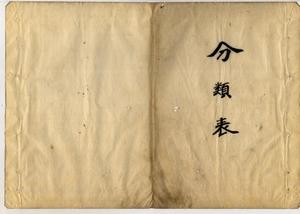 分類表